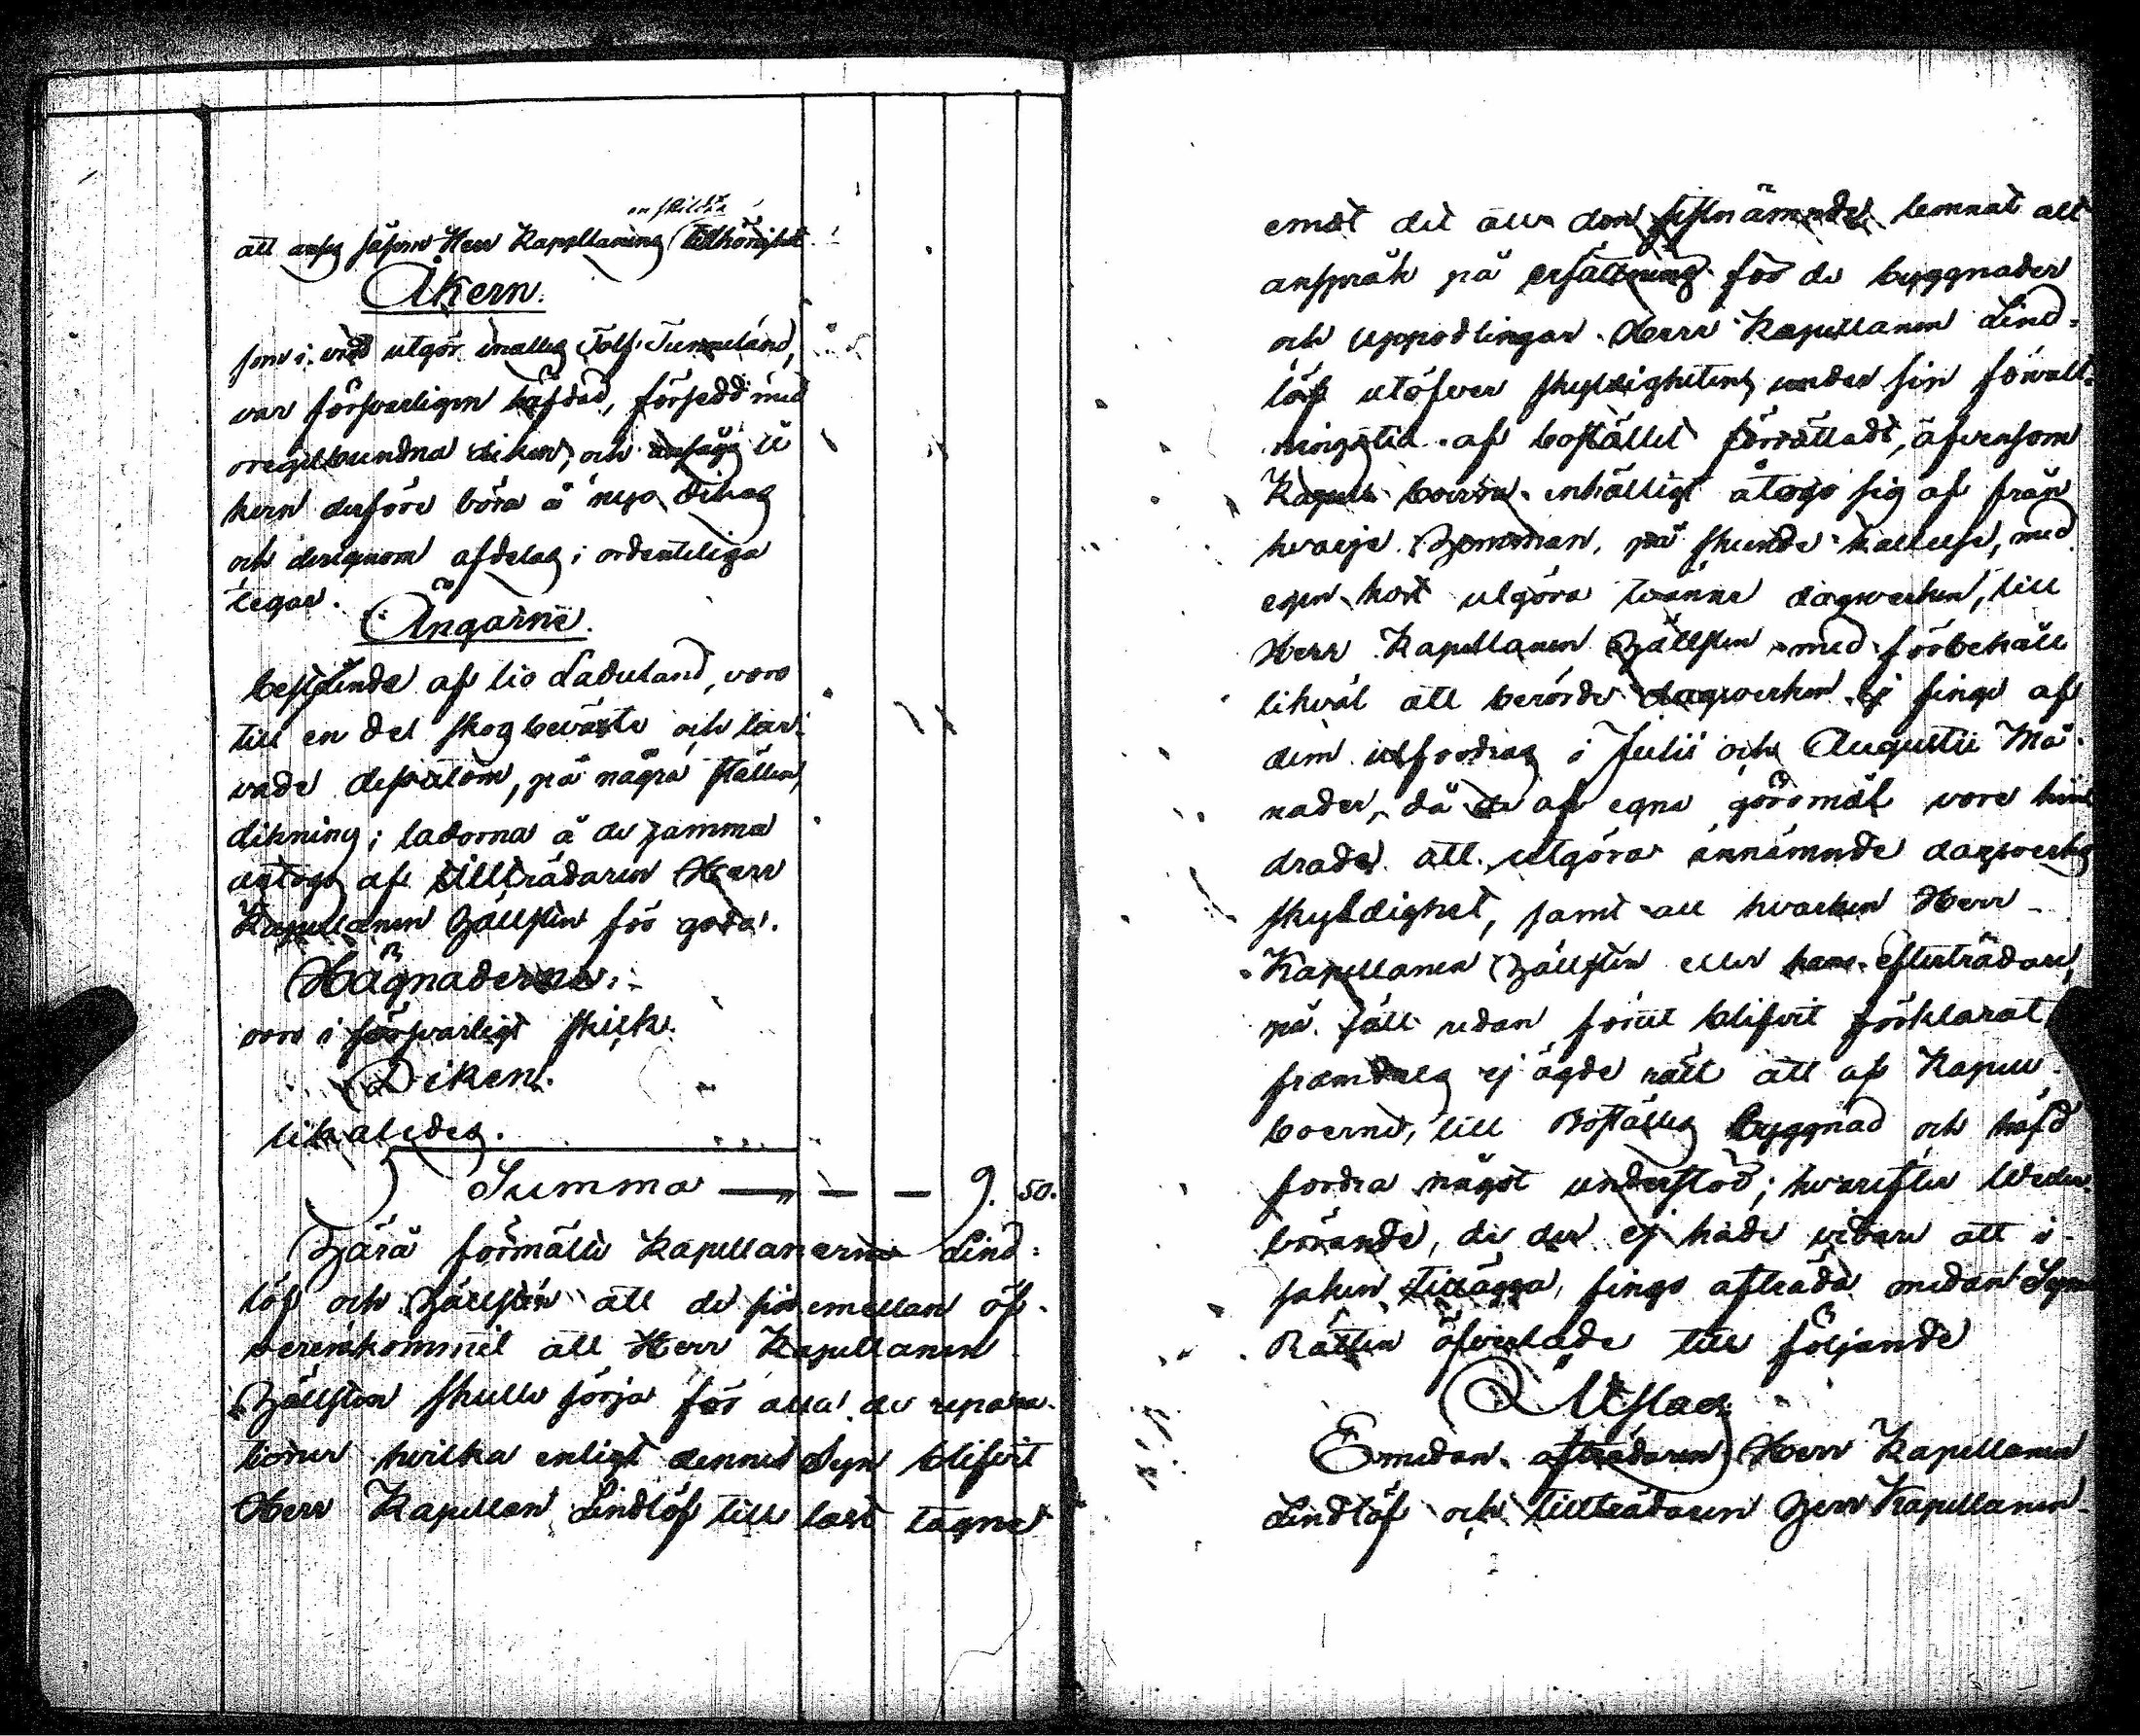 enskilda
att anses såsom Herr Kapellanens tillhörighet
Åkern.
som i vidd utgör inalles Tolf Tunneland,
var försvarligen häfdad, försedd med
oregelbundna diken, och ansågs å
kern derföre böra å nyo dikas
och derigenom afdelas i ordenteliga
tegar.
Ängarne.
bestående af tio Laduland, voro
till en del skogbeväxte och tar-
vade dessutom, på några ställen,
dikning; ladorna å de samma
antogs af tillträdaren Herr
Kapellanen Hällsten för goda.
Hägnaderne.
voro i försvarligt skick.
Diken.
likaledes.
Summa — — — 9. 50.
Härå förmälte Kapellanerne Lind-
löf och Hällstén att de sins emellan öf-
verenskommit att Herr Kapellanen
Hällsten skulle sörja för alla de repara-
tioner hvilka enligt denna Syn blifvit
Herr Kapellan Lindlöf till last tagne
emot det att den sistnämnde lemnat allt
anspråk på ersättning för de byggnader
och uppodlingar Herr Kapellanen Lind-
löf utöfver skyldighetens under sin förvalt-
ningstid af bostället förrättadt, äfvensom
Kapell boerne enhälligt åtogo sig af från
hvarje Hemman, på skeende kallelse, med
egen kost utgöra tvänne dagsverken, till
Herr Kapellanen Hällsten med förbehåll
likväl att berörde dagsverken ej finge af
dem utfordras i Julii och Augustii Må-
nader, då de af egna göromål vore hin-
drade att utgöra ännämnde dagsverks
skyldighet, samt att hvarken Herr
Kapellanen Hällsten eller hans efterträdare,
på sätt redan förut blifvit förklarat
framdeles ej ägde rätt att af Kapell
boerne, till Boställets byggnad och häfd
fordra något understöd; hvarefter Weder-
börande, de der ej hade vidare att i
saken tillägga, fingo afträda medan Syne
Rätten öfverlade till följande
Utslag
Emedan afträdaren Herr Kapellanen
Lindlöf och tillträdaren Herr Kapellanen